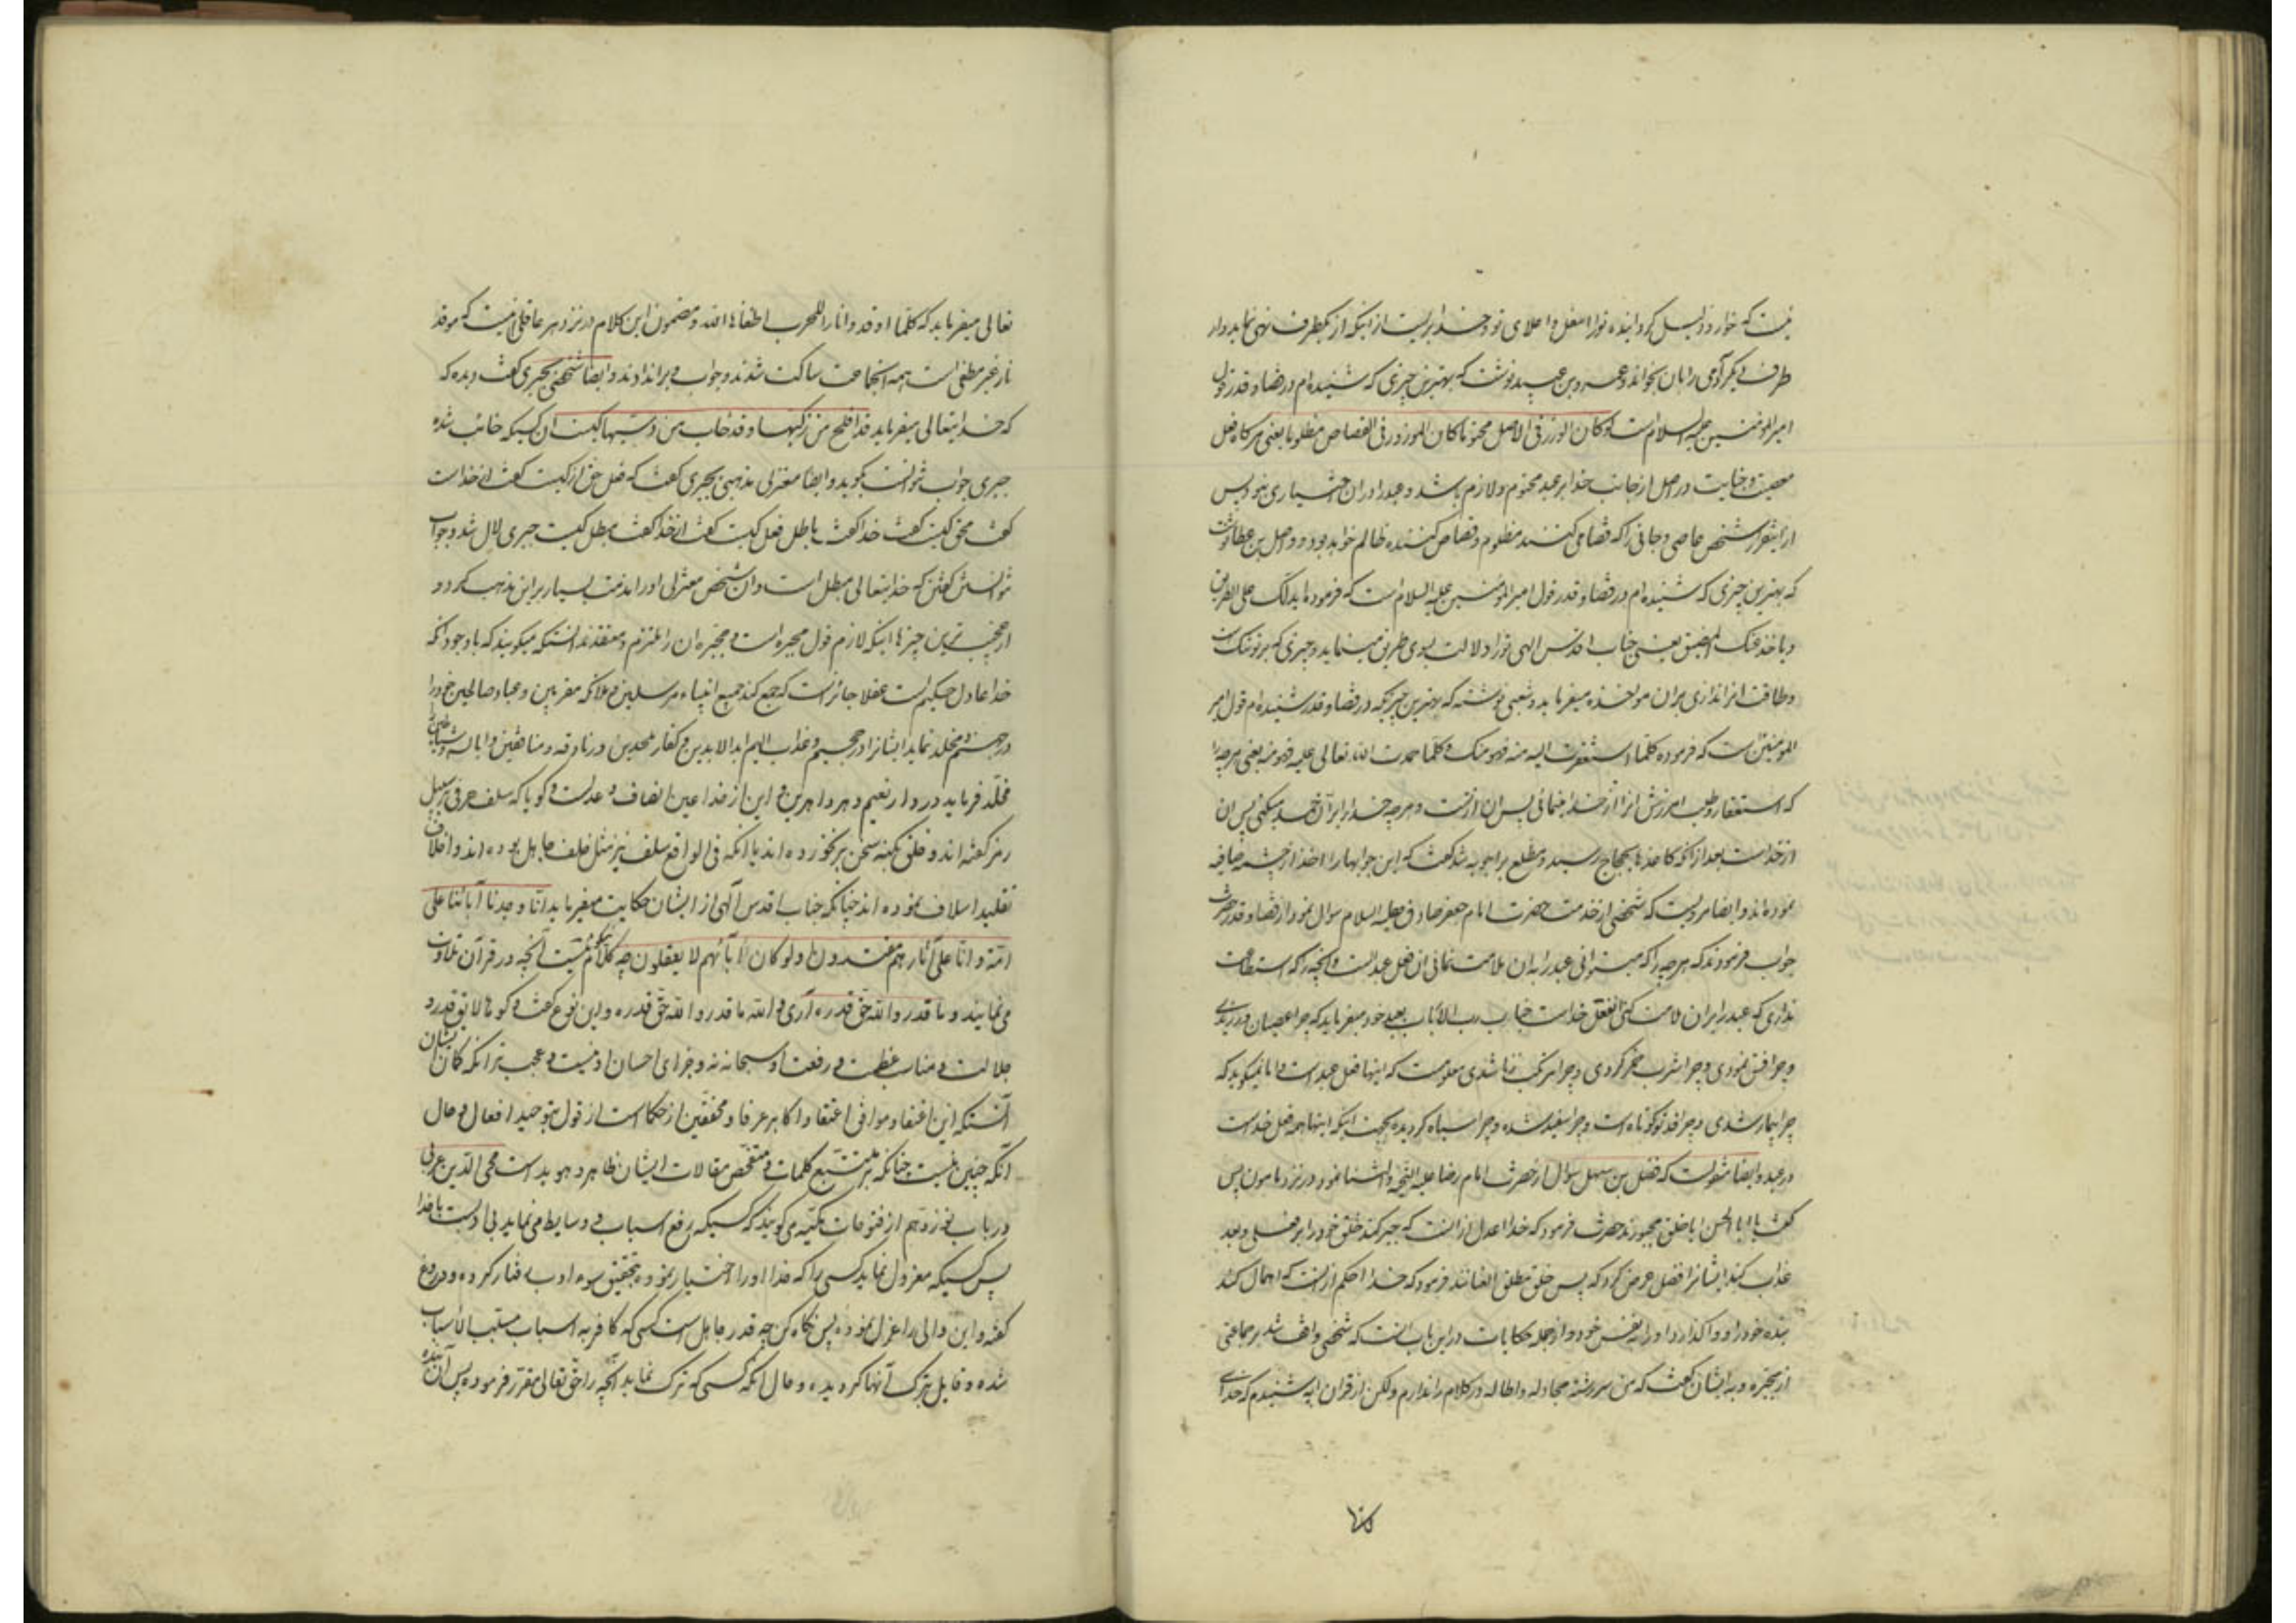 نیست که خوار و ذلیل گردانیده تو را اسفل و اعلای تو و خدا بریست از اینکه از یکطرف نهی نماید و از
طرف دیگر آدمی را بان بخواند و عمرو بن عبید نوشت که بهترین چیزی که شنیده‌ام در قضا و قدر قول
امیر المؤمنین علیه السلام است لو کان الوزر فی الاصل محتوما کان الموزور فی القصاص مظلوما یعنی هر گاه فعل
معصیت و جنایت در اصل از جانب خدا بر عبد محتوم و لازم باشد و عبد را در ان اختیاری نبود پس
از اینقرار شخص عاصی و جانی را که قصاص می کنند مظلوم و قصاص کننده ظالم خواهد بود و واصل بن عطا نوشت
که بهترین چیزی که شنیده‌ام در قضا و قدر قول امیر المؤمنین علیه السلام است که فرمود ایدلک علی الطریق
و یاخذ علیک المضیق یعنی جناب اقدس الهی تو را دلالت بسوی طریق مینماید و چیزی که بر تو تنک است
و طاقت انرا نداری بران مواخذه میفرماید و شعبی نوشته که بهترین چیزیکه در قضا و قدر شنیده‌ام قول امیر
المؤمنین است که فرموده کلما استغفرت الله منه فهو منک و کلما حمدت الله تعالی علیه فهو منه یعنی هر چه را
که استغفار و طلب امرزش انرا از خدا مینمائی پس ان از تست و هر چه خدا را بر آن حمد میکنی پس ان
از خداست بعد از آنکه کاغذها بحجاج رسید و مطلع بر اجوبه شد گفت که این جوابها را اخذ از چشمه صافیه
نموده‌اند و ایضا مرویست که شخصی از خدمت حضرت امام جعفر صادق علیه السلام سوال نمود از قضا و قدر حضرت
جواب فرمودند که هر چه را که میتوانی عبد را به ان ملامت نمائی ان فعل عبد است و آنچه را که استطاعت
نداری که عبد را بران ملامت کنی ان فعل خداست جناب رب الارباب بعبد خود میفرماید که چرا عصیان ورزیدی
و چرا فسق نمودی و چرا شرب خمر کردی و چرا مرتکب زنا شدی معلوم است که اینها فعل عبد است و اما نمیگوید که
چرا بیمار شدی و چرا قد تو کوتاه است و چرا سفید شده و چرا سیاه گردیده بجهت اینکه اینها همه فعل خداست
در عبد و ایضا منقولست که فضل بن سهل سوال از حضرت امام رضا علیه التحیه و الثنا نمود در نزد مامون پس
گفت یا ابا الحسن ایا خلق مجبورند حضرت فرمود که خدا اعدل از انست که جبر کند خلق خود را بر فعلی و بعد
عذاب کند ایشانرا فضل عرض کرد که پس خلق مطلق العنانند فرمود که خدا احکم از انست که اهمال کند
بنده خود را و واگذارد او را به نفس خود و از جمله حکایات در این باب انست که شخصی واقف شد بر جماعتی
از مجبره و به ایشان گفت که من سررشته مجادله و اطاله در کلام را ندارم ولکن از قران ایه شنیدم که خدای
تعالی میفرماید که کلما اوقدوا نارا للحرب اطفاها الله و مضمون این کلام در نزد هر عاقلی نیست که موقد
نار غیر مطفی است همه انجماعت ساکت شدند و جواب وی را ندادند و ایضا شخصی بجبری گفت دیده که
که خدایتعالی میفرماید قد افلح من زکیها و قد خاب من دسیها کیست ان کسیکه خائب شده
جبری جواب نتوانست بگوید و ایضا معتزلی مذهبی بجبری گفت که فعل حق از کیست گفت از خداست
گفت محق کیست گفت خدا گفت باطل فعل کیست گفت از خدا گفت مبطل کیست جبری لال شد و جواب
نتوانستی گفتن که خدایتعالی مبطل است و ان شخص معتزلی او را مذمت بسیار بر این مذهب کرد و
از عجیب ترین چیزها اینکه لازم قول مجبره است و مجبره ان را ملتزم و معتقدند انستکه میگویند که با وجود آنکه
خدا عادل حکیم است عقلا جائز است که جمع کند جمیع انبیاء مرسلین و ملائکه مقربین و عباد صالحین خود را
در جهنم و مخلد نماید ایشانرا در جحیم و عذاب الیم ابد الابدین و کفار ملحدین و زنادقه و منافقین و ابالسه و شیاطین را
مخلد فرماید در دار نعیم دهر داهرین و این از خدا عین انصاف و عدلست و گویا که سلف حرفی بر سبیل
رمز گفته‌اند و خلف بکنه سخن بر نخورده‌اند یا انکه فی الواقع سلف نیز مثل خلف جاهل بوده‌اند و اخلاف
تقلید اسلاف نموده‌اند چنانکه جناب اقدس آلهی از ایشان حکایت میفرماید انا وجدنا آبائنا علی
امة و انا علی آثارهم مقتدون او لو کان آبائهم لا یعقلون چه نیکو کلامیست آنچه در قرآن تلاوت
می نمایند و ما قدروا الله حق قدره آری و الله ما قدروا الله حق قدره و این نوع گفت و گوها لایق قدر و
جلالت و مناسب عظمت و رفعت او سبحانه نه و جزای احسان او نیست و عجب تر انکه گمان ایشان
آنستکه این اعتقاد موافق اعتقاد اکابر عرفا و محققین از حکما است از قول بتوحید افعال و حال
آنکه چنین نیست چنانکه بر متتبع کلمات و متفحص مقالات ایشان ظاهر و هویداست محی الدین عربی
در باب نوزدهم از فتوحات مکیه می گویند که کسیکه رفع اسباب و وسایط می نماید بی ادبست با خدا
پس کسیکه معزول نماید کسی را که خدا او را اختیار نموده بتحقیق سوء ادب رفتار کرده و دروغ
گفته و این والی را عزل نموده پس نگاه کن چه قدر جاهل است کسی که کافر به اسباب مسبب الاسباب
شده و قایل بترک آنها گردیده و حال آنکه کسی که ترک نماید آنچه را حق تعالی مقرر فرموده پس آن بنده